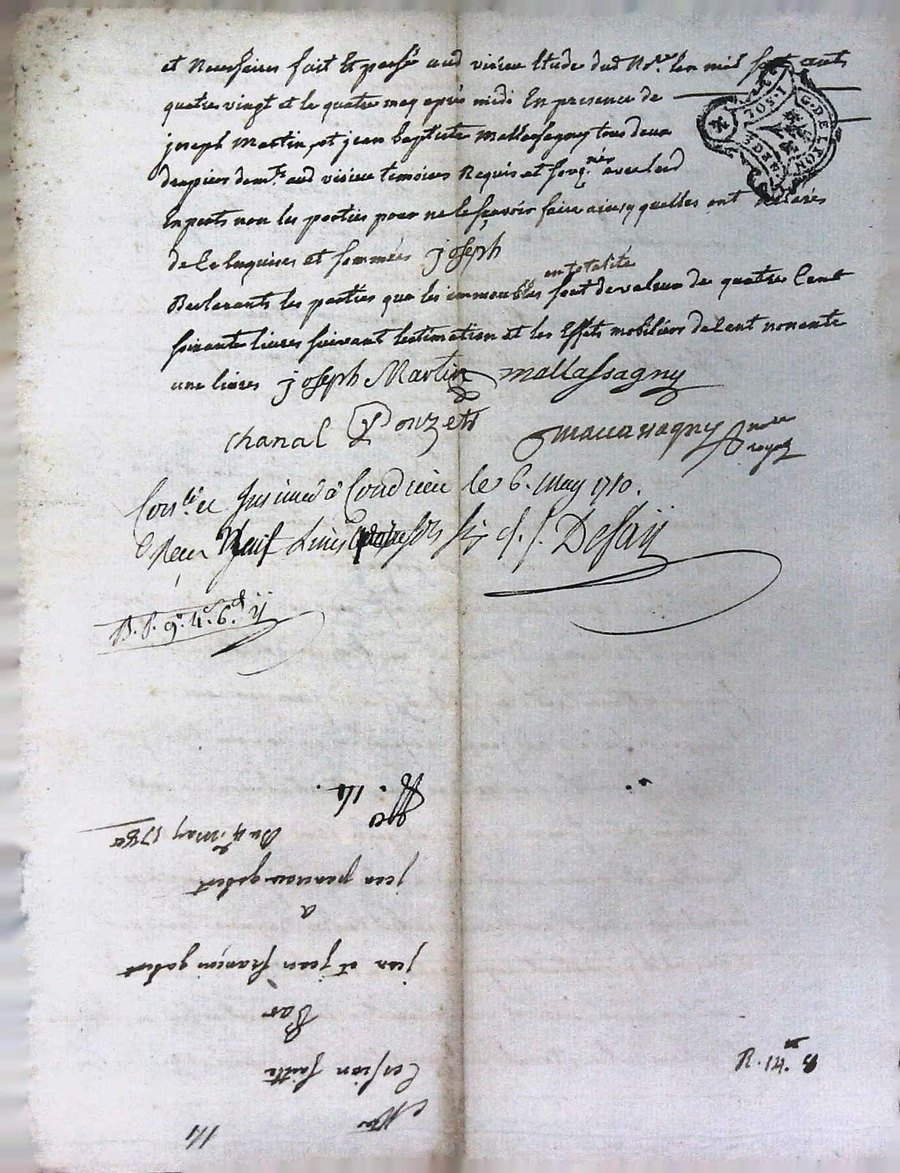 et
fait Et passé aud vizieu Etude dud No.re Lan mil sept cents
quatre vingt et le quatre may après midi En presence de
joseph Martin, et jean baptiste Mallassagny tous deux
drapiers aud vizieu temoins Requis et soug.nés avec lesd
Experts non les parties pour ne le sçavoir faire ainsy quelles ont declarés
de ce Enquises et sommées joseph
en totalité
Declarants les parties que les immeubles sont de valeur de quatre Cent
soixante livres suivant lestimation et les Effets mobiliers de Cent nonante
une livres joseph Martin mallassagny
chanal Pouzet
mallassagny no.re
royal
Con.lé et Insinué à Condrieu le 6. May 1780.
Reçu Neuf Livres quatre sols six d. Desaÿ
9. 4. 6.
G. DE LYON
1. SOL
14.
Du 4.e May 1780
jean gabert
a
jean et jean françois gabert
Par
Cession faitte
14
R. 14.